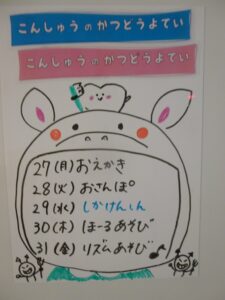 こんしゅうのかつどうよてい
こんしゅうのかつどうよてい
27(月)おえかき
28(火)おさんぽ
29(水)しかけんしん
30(木)ぼーるあそび
31(金)リズムあそび